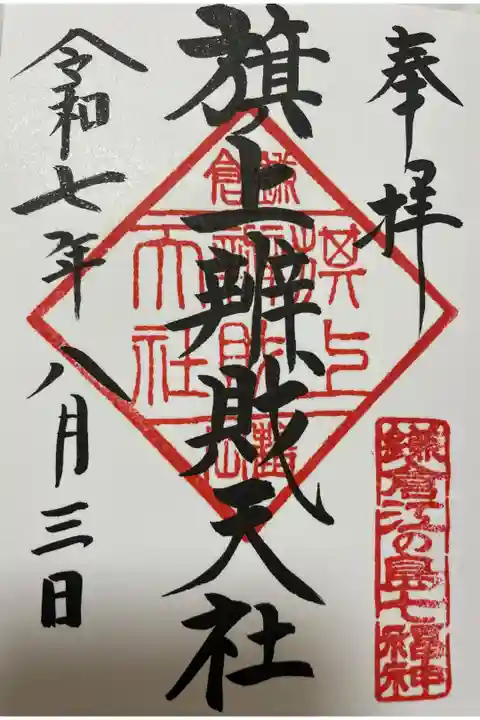 奉拝
鎌倉江の島七福神
旗上辨財天社
鎌倉
旗上
天社
令和七年八月三日